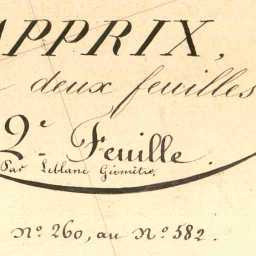 APPRIX,
deux feuilles
2e Feuille.
Par Leblanc Géomètre.
No. 260, au No. 582.